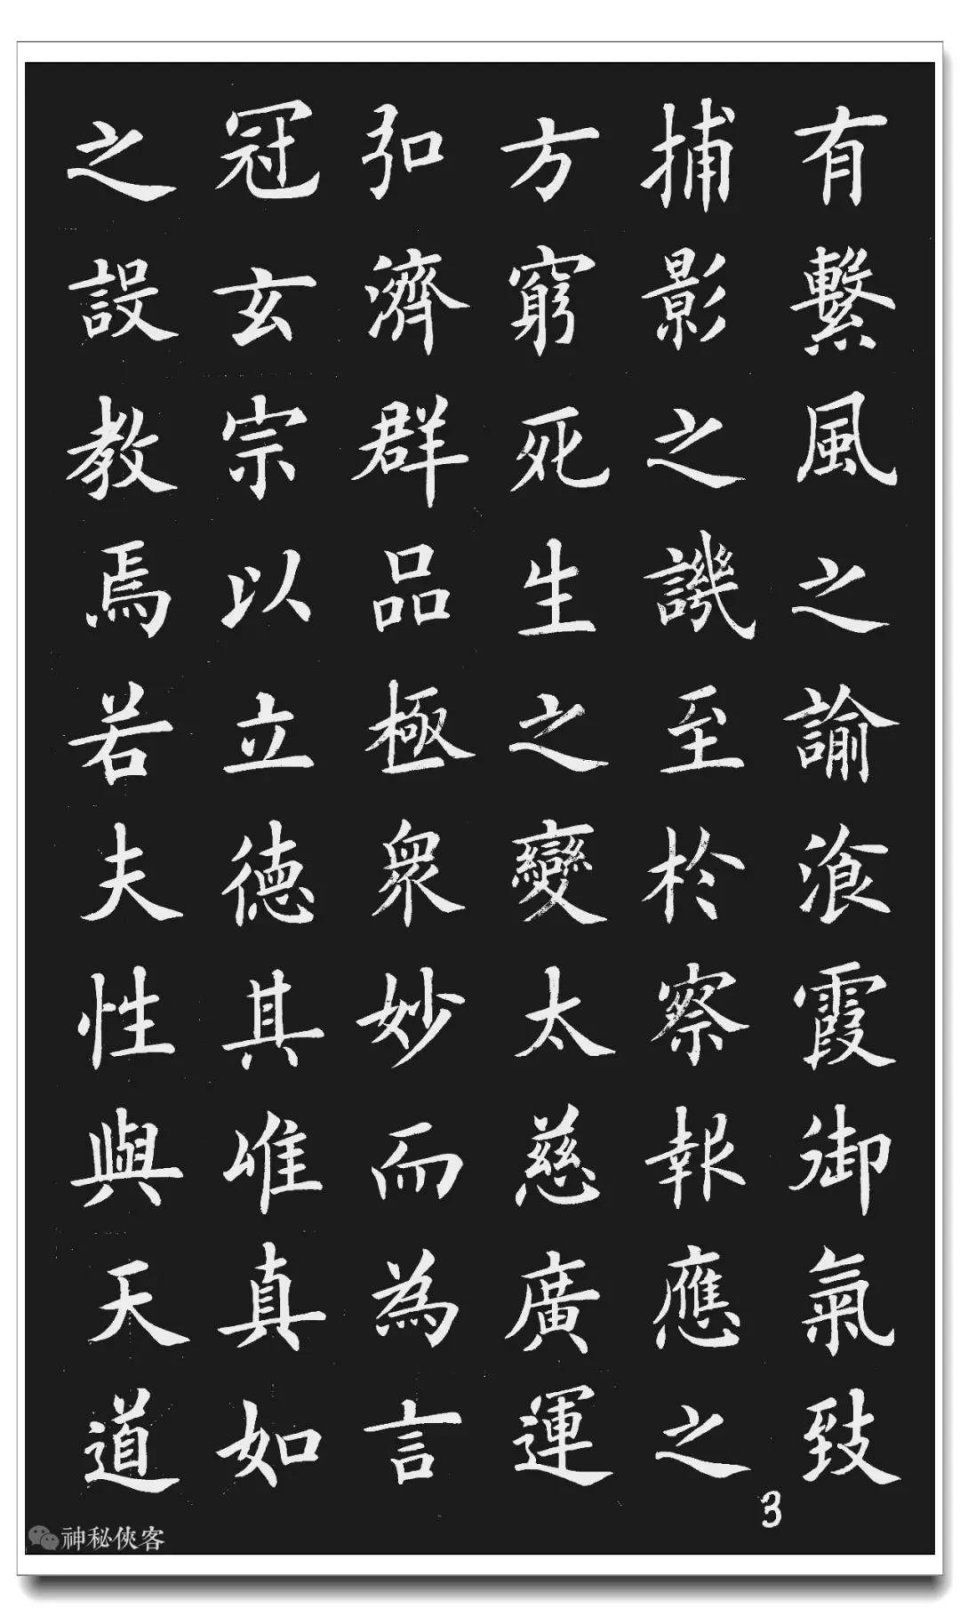 有繫風之諭飡霞御氣致
捕影之譏至於察報應之
方窮死生之變太慈廣運
弘濟群品極衆妙而為言
冠玄宗以立德其唯真如
之設教焉若夫性與天道
3
神秘俠客